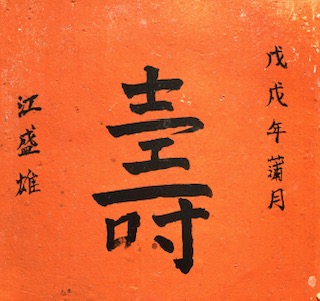 戊戌年蒲月
壽
江盛雄